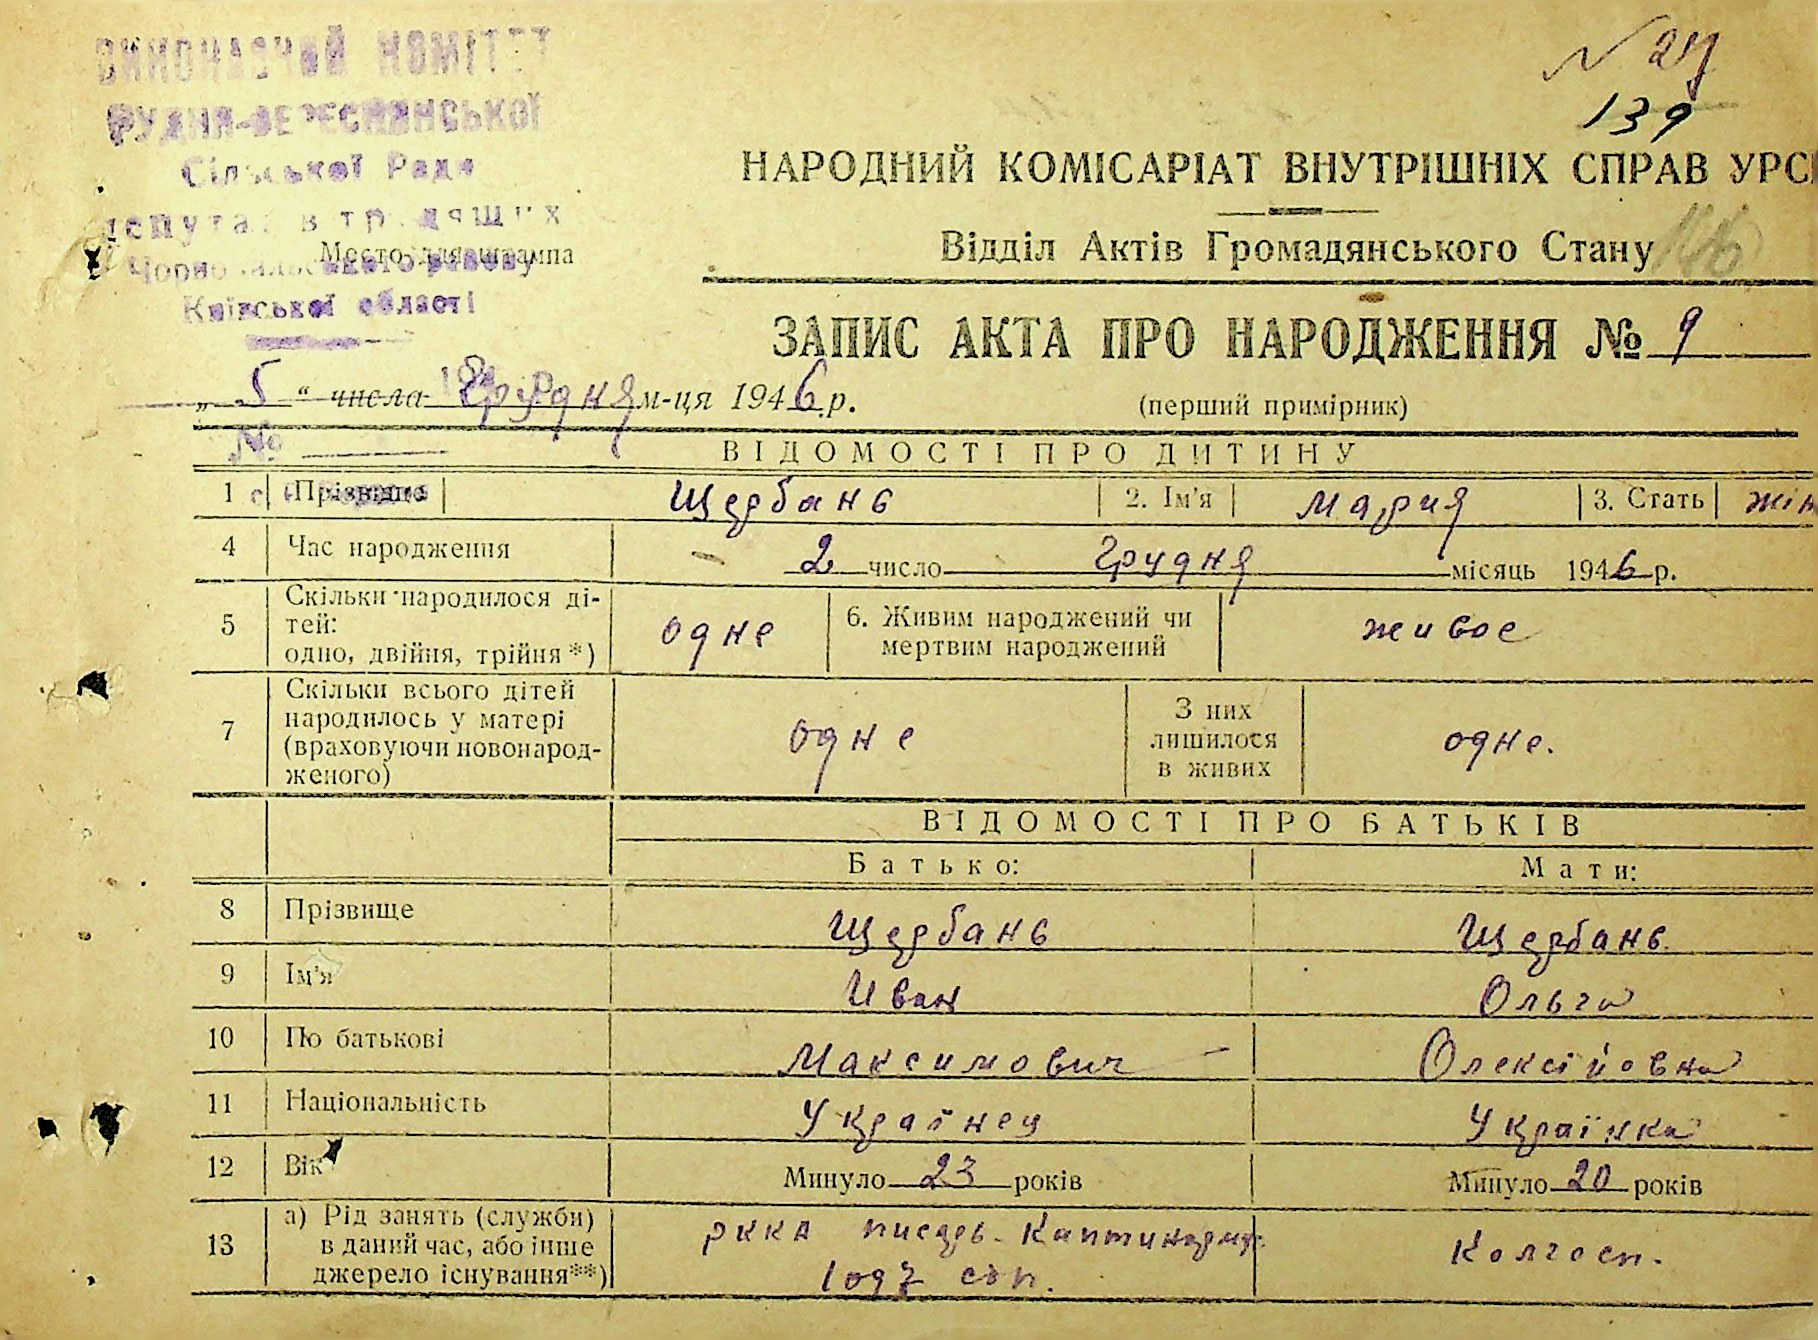 ВИКОНАВЧИЙ КОМІТЕТ
РУДНЯ-ВЕРЕСНЯНСЬКОЇ
Сільської Ради
депутатів трудящих
Чорнобильського району
Київської області
Место для штампа
№ 24
139
НАРОДНИЙ КОМІСАРІАТ ВНУТРІШНІХ СПРАВ УРСР
Відділ Актів Громадянського Стану
ЗАПИС АКТА ПРО НАРОДЖЕННЯ № 9
„ 5 “ числа Грудня м-ця 1946 р.
(перший примірник)
№
ВІДОМОСТІ ПРО ДИТИНУ
1 Прізвище Щербань 2. Ім'я Мария 3. Стать жін
4 Час народження 2 число Грудня місяць 1946 р.
5 Скільки народилося ді-
тей:
одно, двійня, трійня*) одне 6. Живим народжений чи
мертвим народжений живое
7 Скільки всього дітей
народилось у матері
(враховуючи новонарод-
женого) одне З них
лишилося
в живих одне.
ВІДОМОСТІ ПРО БАТЬКІВ
Батько: Мати:
8 Прізвище Щербань Щербань
9 Ім'я Иван Ольга
10 По батькові Максимович Олексійовна
11 Національність Українец Українка
12 Вік Минуло 23 років Минуло 20 років
13 а) Рід занять (служби)
в даний час, або інше
джерело існування**) РККА писарь Колгосп.